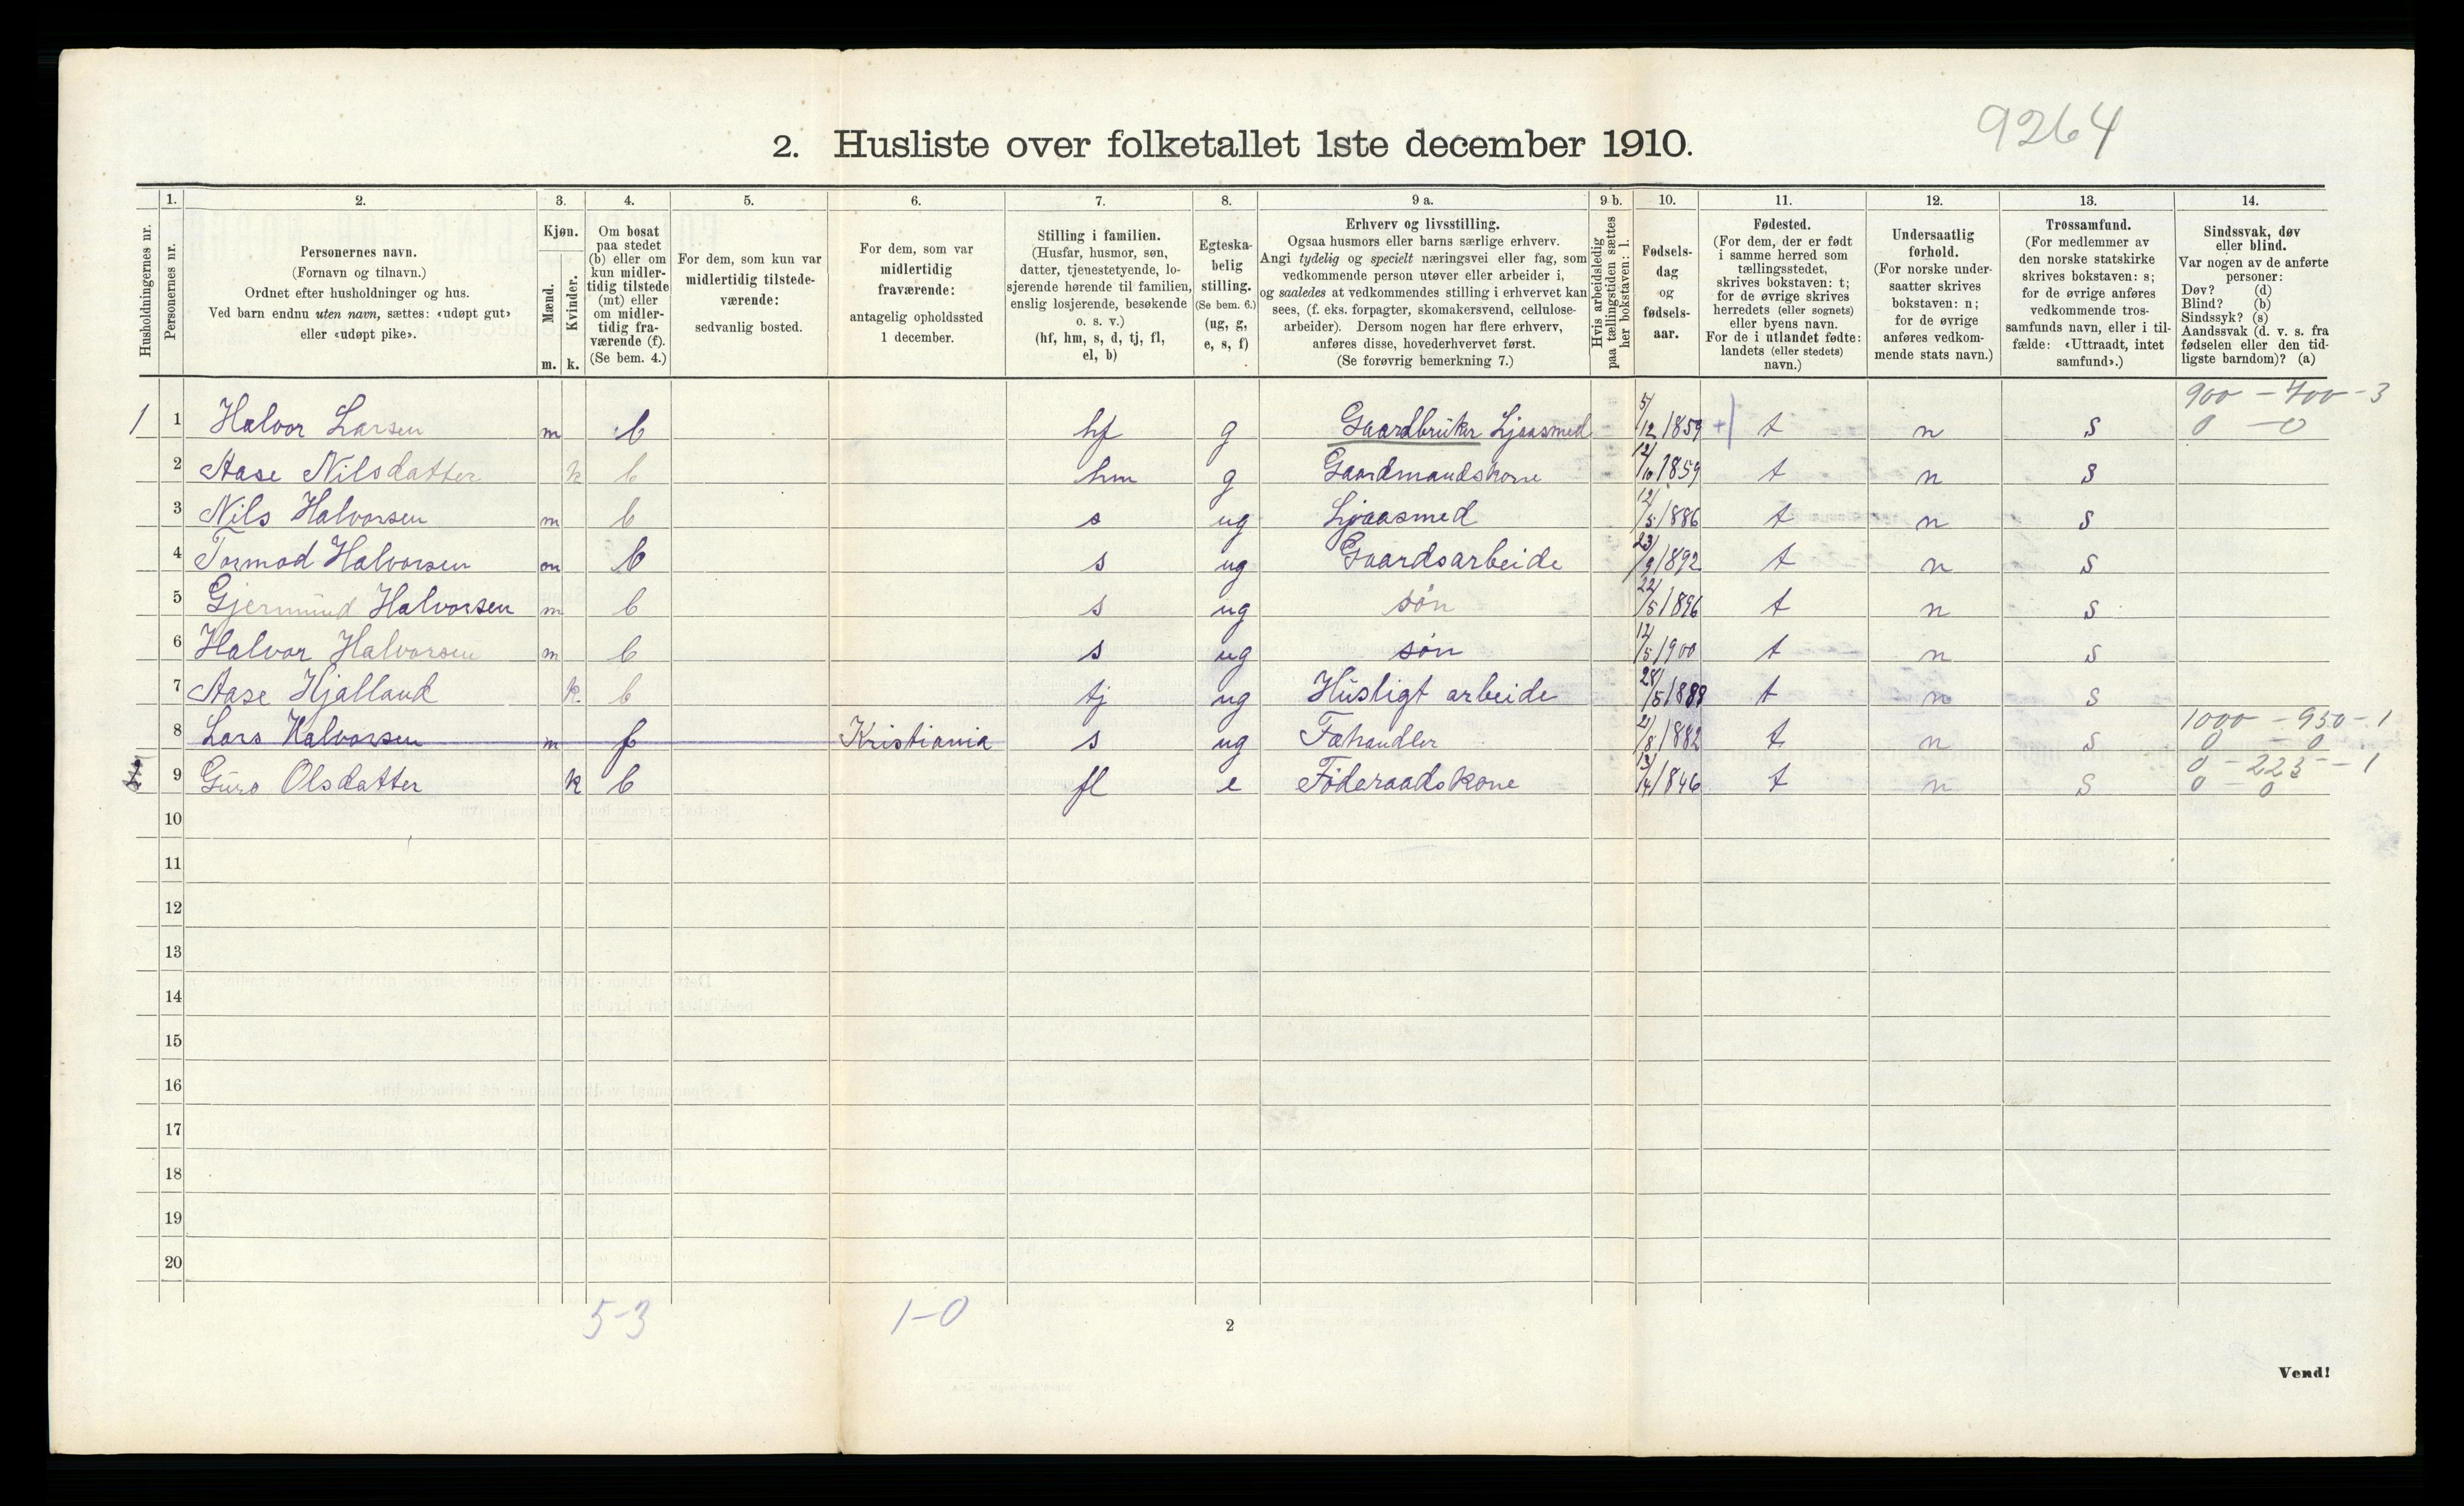 9264
2. Husliste over folketallet 1ste december 1910.
Husholdningernes nr.
1.
Personernes nr.
2.
Personernes navn.
(Fornavn og tilnavn.)
Ordnet efter husholdninger og hus.
Ved barn endnu uten navn, sættes: «udøpt gut»
eller «udøpt pike».
3.
Kjøn.
Mænd.
m.
Kvinder.
k.
4.
Om bosat
paa stedet
(b) eller om
kun midler-
tidig tilstede
(mt) eller
om midler-
tidig fra-
værende (f).
(Se bem. 4.)
5.
For dem, som kun var
midlertidig tilstede-
værende:
sedvanlig bosted.
6.
For dem, som var
midlertidig
fraværende:
antagelig opholdssted
1 december.
7.
Stilling i familien.
(Husfar, husmor, søn,
datter, tjenestetyende, lo-
sjerende hørende til familien,
enslig losjerende, besøkende
o. s. v.)
(hf, hm, s, d, tj, fl,
el, b)
8.
Egteska-
belig
stilling.
(Se bem. 6.)
(ug, g,
e, s, f)
9 a.
Erhverv og livsstilling.
Ogsaa husmors eller barns særlige erhverv.
Angi tydelig og specielt næringsvei eller fag, som
vedkommende person utøver eller arbeider i,
og saaledes at vedkommendes stilling i erhvervet kan
sees, (f. eks. forpagter, skomakersvend, cellulose-
arbeider). Dersom nogen har flere erhverv,
anføres disse, hovederhvervet først.
(Se forøvrig bemerkning 7.)
9 b.
Hvis arbeidsledig
paa tællingstiden sættes
her bokstaven: l.
10.
Fødsels-
dag
og
fødsels-
aar.
11.
Fødested.
(For dem, der er født
i samme herred som
tællingsstedet,
skrives bokstaven: t;
for de øvrige skrives
herredets (eller sognets)
eller byens navn.
For de i utlandet fødte:
landets (eller stedets)
navn.)
12.
Undersaatlig
forhold.
(For norske under-
saatter skrives
bokstaven: n;
for de øvrige
anføres vedkom-
mende stats navn.)
13.
Trossamfund.
(For medlemmer av
den norske statskirke
skrives bokstaven: s;
for de øvrige anføres
vedkommende tros-
samfunds navn, eller i til-
fælde: «Uttraadt, intet
samfund».)
14.
Sindssvak, døv
eller blind.
Var nogen av de anførte
personer:
Døv? (d)
Blind? (b)
Sindssyk? (s)
Aandssvak (d. v. s. fra
fødselen eller den tid-
ligste barndom)? (a)
900 - 700 - 3
1 1 Halvor Larsen m b hf g Gaardbruker Ljaasmed 5/12 1859 + t n s 0 - 0
2 Aase Nilsdatter k b hm g Gaardmandskone 12/10 1859 t n s
3 Nils Halvorsen m b s ug Ljaasmed 12/5 1886 t n s
4 Tormod Halvorsen m b s ug Gaardsarbeide 23/9 1892 t n s
5 Gjermund Halvorsen m b s ug søn 22/5 1896 t n s
6 Halvor Halvorsen m b s ug søn 12/5 1900 t n s
7 Aase Hjalland k b tj ug Husligt arbeide 28/5 1888 t n s
1000 - 950 - 1
8 Lars Halvorsen m f Kristiania s ug Fæhandler 21/8 1882 t n s 0 - 0
0 - 223 - 1
9 Guro Olsdatter k b fl e Føderaadskone 13/4 1846 t n s 0 - 0
10
11
12
13
14
15
16
17
18
19
20
5-3
1-0
2
Vend!